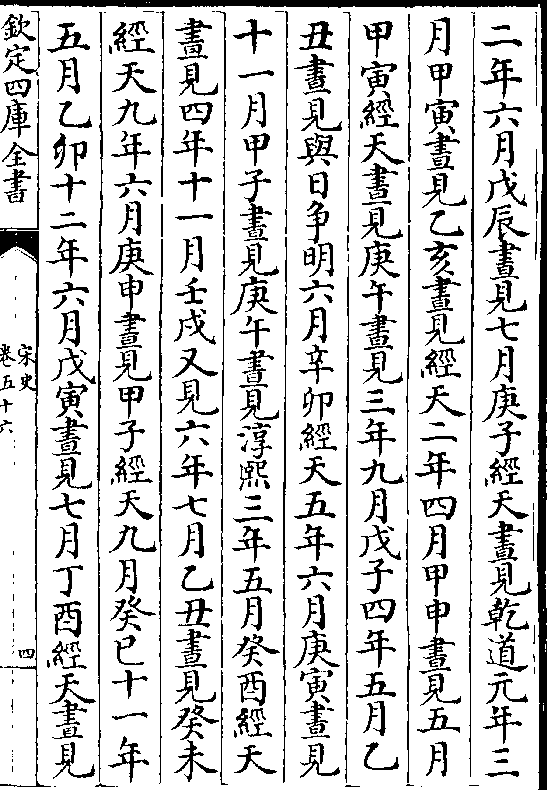 二年六月戊辰晝見七月庚子經天晝見乾道元年三
月甲寅晝見乙亥晝見經天二年四月甲申晝見五月
甲寅經天晝見庚午晝見三年九月戊子四年五月乙
丑晝見與日争明六月辛卯經天五年六月庚寅晝見
十一月甲子晝見庚午晝見淳熙三年五月癸酉經天
晝見四年十一月壬戌又見六年七月乙丑晝見癸未
經天九年六月庚申晝見甲子經天九月癸巳十一年
五月乙卯十二年六月戊寅晝見七月丁酉經天晝見
欽定四庫全書
宋史
卷五十六
四